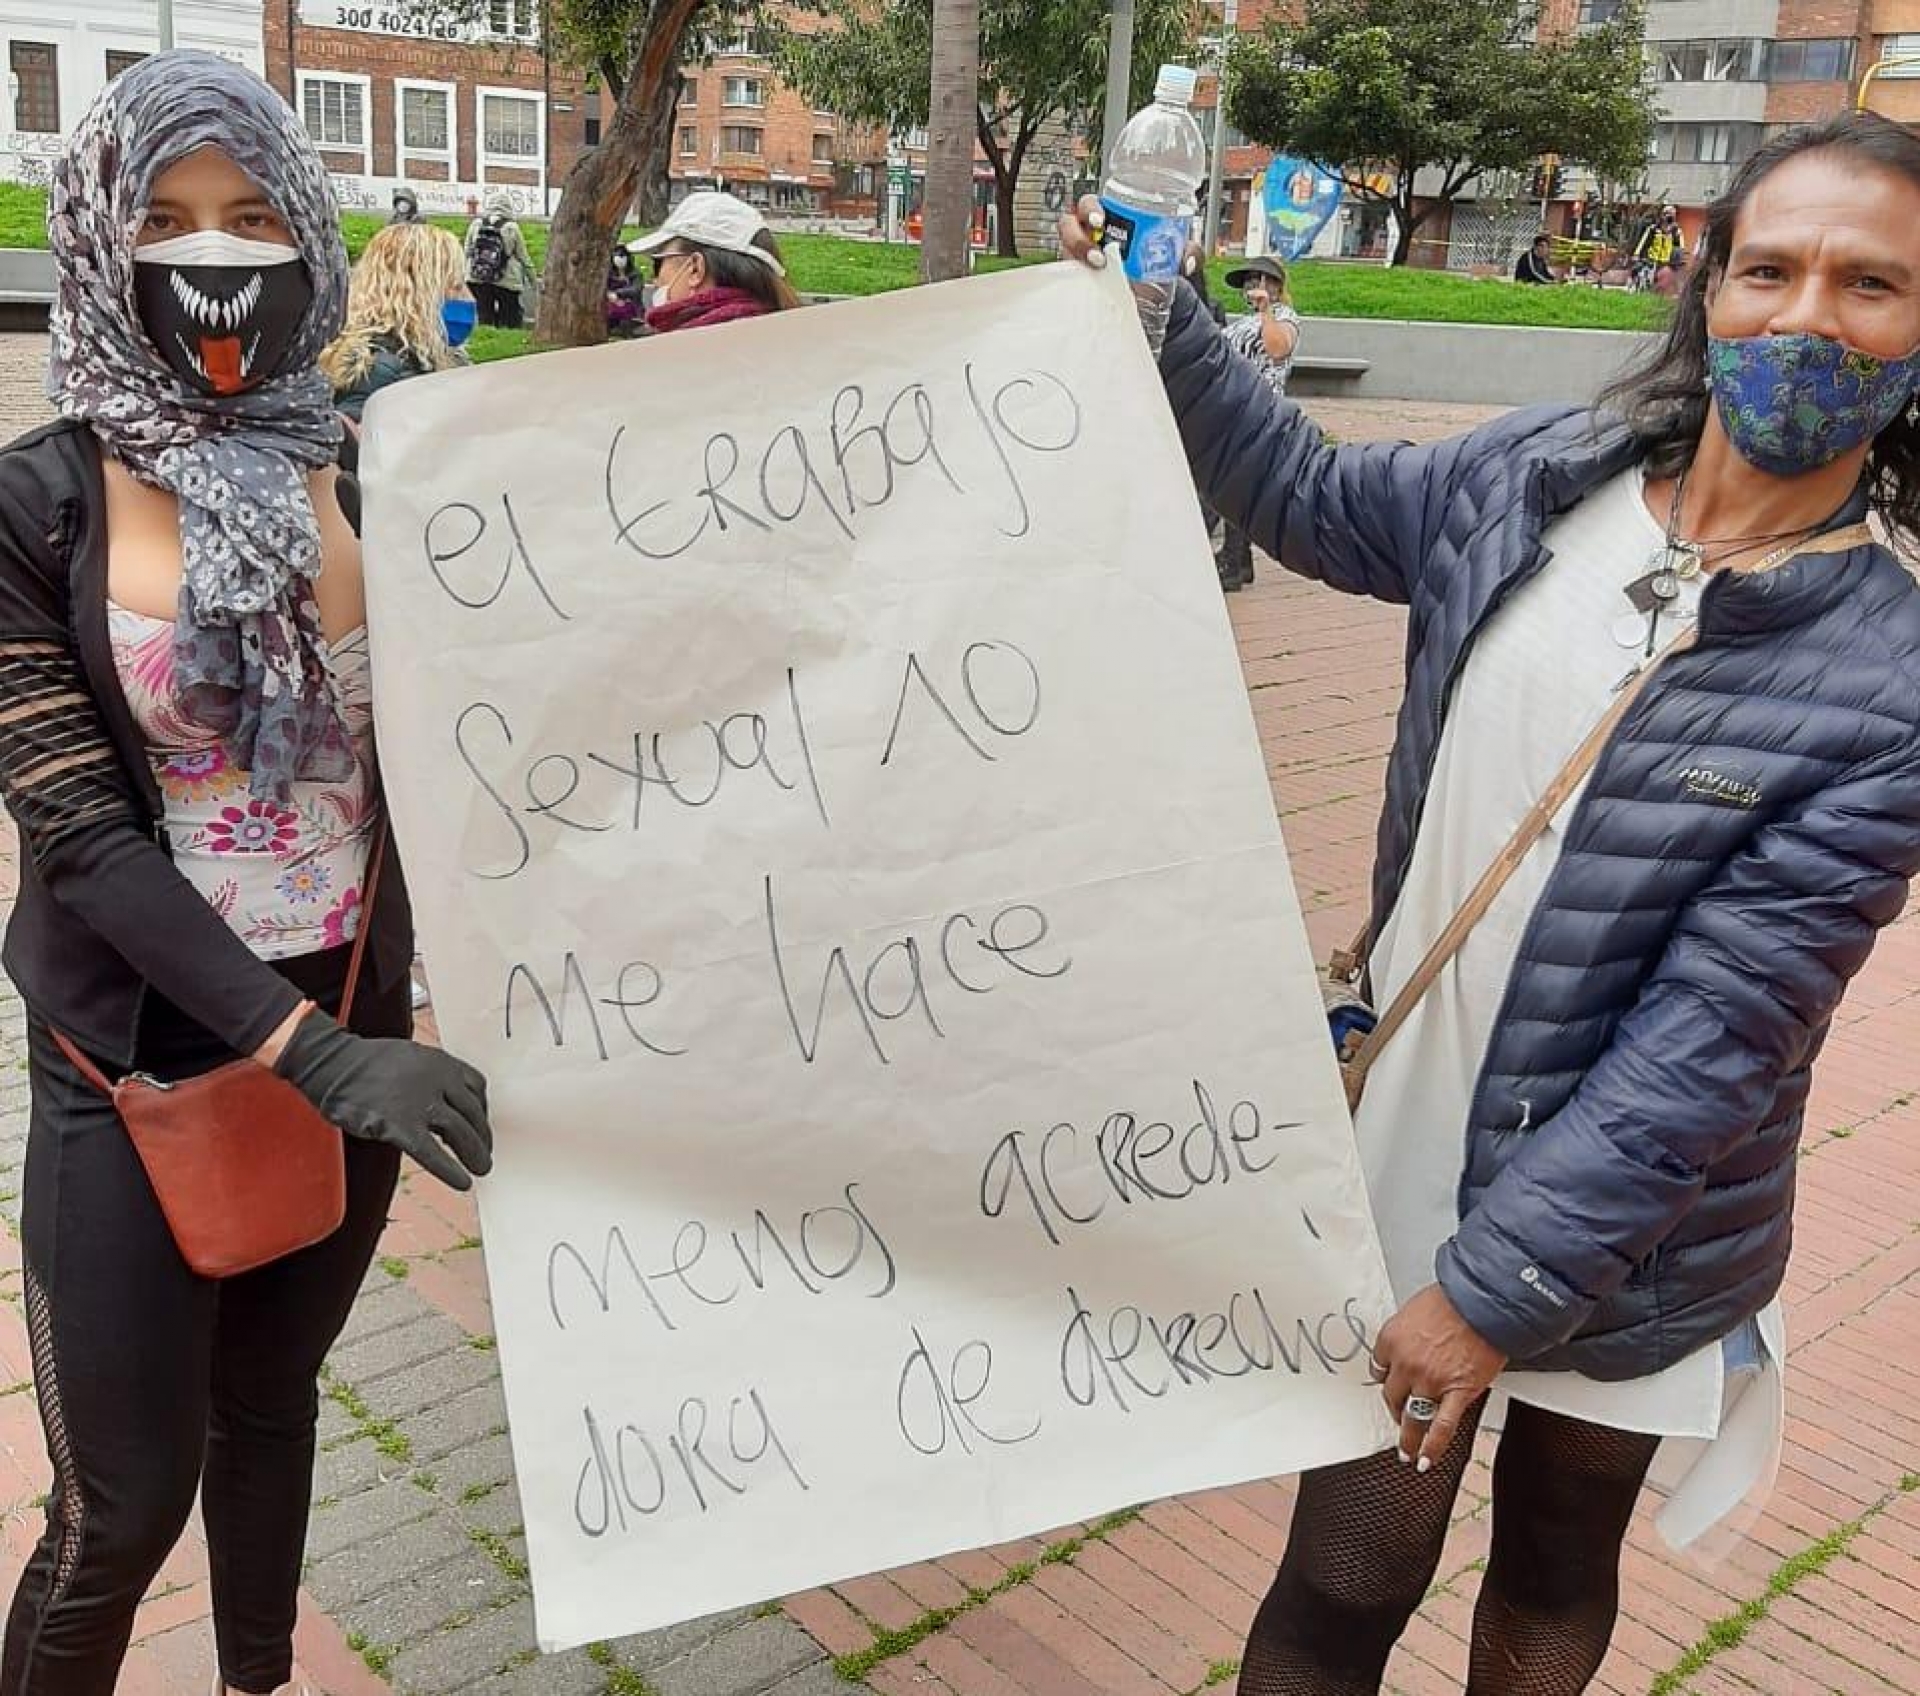 300 4024726
el trabajo
sexual no
me hace
menos acrede-
dora de derechos